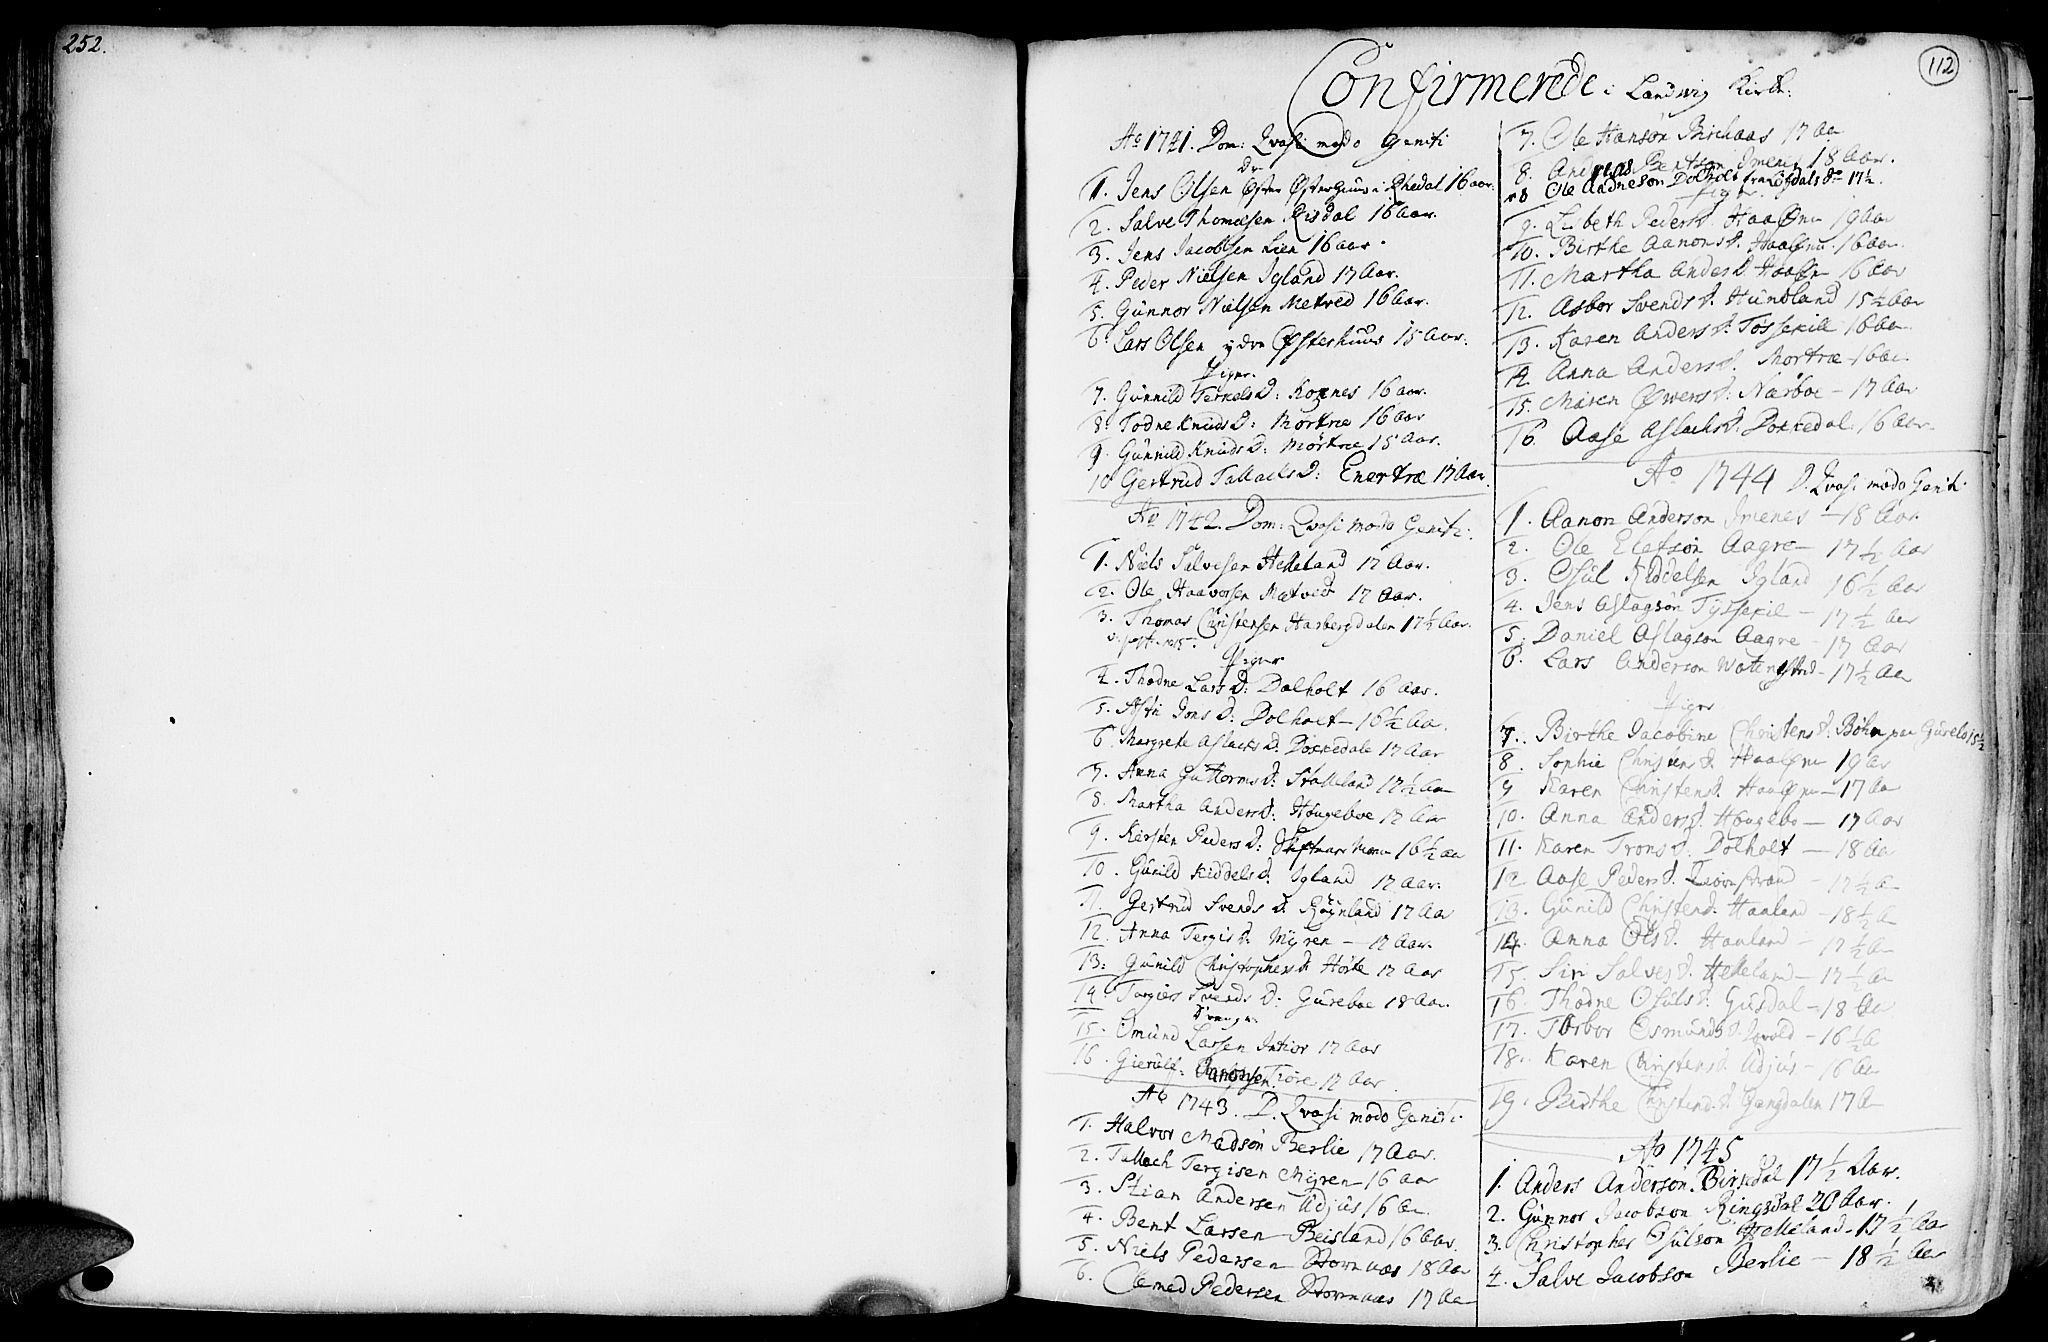 252.
112
Confirmerede i Landvig Kirke:
Aº 1741. Dom: Qvasi modo Geniti
Dr
1. Jens Olsen Øster Østerhuus i Rhedal 16 aar.
2. Salve Thomesen Risdal 16 aar.
3. Jens Jacobsen Lien 16 aar.
4. Peder Nielsen Igland 17 Aar.
5. Gunnor Nielsen Metved 16 aar.
6. Lars Olsen ydre Østerhuus 15 Aar.
Piger.
7. Gunnild TerkelsD: Roxnes 16 aar.
8. Todne KnudsD: Mørtræ 16 aar
9. Gunnild KnudsD: Mørtræ 15 Aar.
10 Gertrud TallachsD: Enertræ 17 Aar.
Aº 1742. Dom: Qvasi modo Geniti.
1. Niels Salvesen Helleland 17 Aar.
2. Ole Haavorsen Mætved 17 Aar.
3. Thomas Christensen Harbergdalen 17½ Aar.
Piger
4. Thodne LarsD: Dolholt 16 Aar.
5. Astri JonsD: Dolholt 16½ Aa.
6. Margrete AslachsD: Doxedale 17 Aar
7. Anna GuttormsD: Stalleland 17½ Aar
8. Martha AndersD: Hougeboe 17 Aar
9. Kirsten PedersD: 16½ aa
10. Gunild KiddelsD: Igland 17 Aar.
11. Gertrud SvendsD. Røynland 17 Aar
12. Anna TergisD. Myren – 17 Aar.
13: Gunild ChristophersD. Hørte 17 Aar
14. Torgier SvendsD: Gureboe 18 Aar.
Drenge
15. Omund Larsen Intior 17 Aar
16. Gierulf: Aanonsen Tiøre 17 Aar
Aº 1743. D. Qvasi modo Geniti.
1. Halvor Madsøn Berlie 17 Aar.
2. Tallach Tergisen Myren – 16 Aar
3. Stian Andersen Adjus 16 Aa.
4. Bent Larsen Beisland 16 Aar.
5. Niels Pedersen Stornæs 18 Aar
6. Clemed Pedersen Stornæs 17 Aa
7. Ole Hansøn Birchaas 17 Aa
8. Andreas Bentsøn Imenes 18 Aar.
no 8 Ole Andresøn Dolholt fra Løgdals 17½.
Piger
9. Lisbeth PedersD. Haaøen 19 Aar
10. Birthe AanonsD. Haaøen 16 Aar.
11. Martha AndersD. Haaøen 16 Aar
12. Asbor SvendsD. Hundland 15½ Aar
13. Karen AndersD. Tossekill 16 Aar
14. Anna AndersD. Mortræ 16 Aar.
15. Maren ØwensD: Narboe – 17 Aar
16. Aase AslachsD. Doxedal. 16 Aar.
Aº 1744 D. Qvasi modo Geniti.
1. Aanon Anderson Imenes – 18 Aar.
2. Ole Elefsøn Aagre – 17½ Aar
3. Osul Kiddelsen Igland 16½ Aar
4. Jens Aslagsøn Tyssekil – 17½ Aar
5. Daniel Aslagson Aagre – 17 Aar
6. Lars Anderson Watenstrand – 17½ Aar
Piger
7. Birthe Jacobine ChristensD: Bøhn paa Gurebo 15½
8. Sophie ChristensD. Haaøen 19 Aar
9 Karen ChristensD. Haaøen – 17 Aa
10. Anna AndersD. Hougebo – 17 Aar
11. Karen TronsD. Dolholt – 18 Aar
12 Aase PedersD. – 17½ A
13. Gunild ChristensD. Haaland – 18½ A
14. Anna OlsD. Hauland – 17½ A
15. Siri SalvesD. Helleland – 17½ Aa
16. Thodne OsulsD. Gusdal – 18 Aar
17. Torbor OsmundsD. – 16½ A
18. Karen ChristensD. Adjus – 16 Aar
19. Birthe ChristensD. Gangdalen 17 A
Aº 1745
1. Anders Anderson Birkedal 17½ Aar.
2. Gunnor Jacobson Ringsdal 20 Aar.
3. Christopher Osulson Helleland – 17½ Aar
4. Salve Jacobson Berlie – 18½ Aar